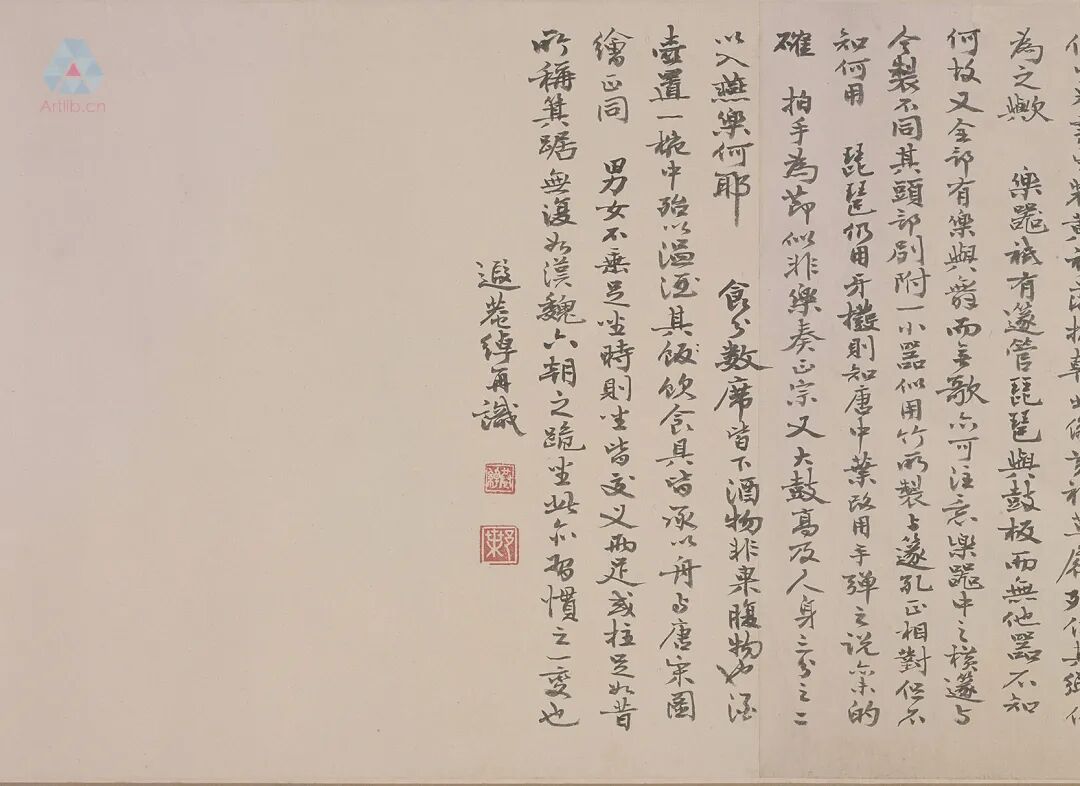 為之歟 樂器祗有篴管琵琶與鼓板而無他器不知
何故又全部有樂與舞而無歌亦可注意樂器中之橫篴與
今製不同其頭部別附一小器似用竹所製與篴孔正相對但不
知何用 琵琶仍用牙撥則知唐中葉改用手彈之說亦未的
確 拍手為節似非樂奏正宗又大鼓高及人身三分之二
以入燕樂何耶 食分數席皆下酒物非果腹物也酒
壺置一椀中殆以溫酒其飯飲食具皆承以舟與唐宋圖
繪正同 男女不垂足坐時則坐皆交叉兩足或拄足如昔
所稱箕踞無復如漢魏六朝之跪坐此亦習慣之一變也
遐菴綽再識
Artlib.cn